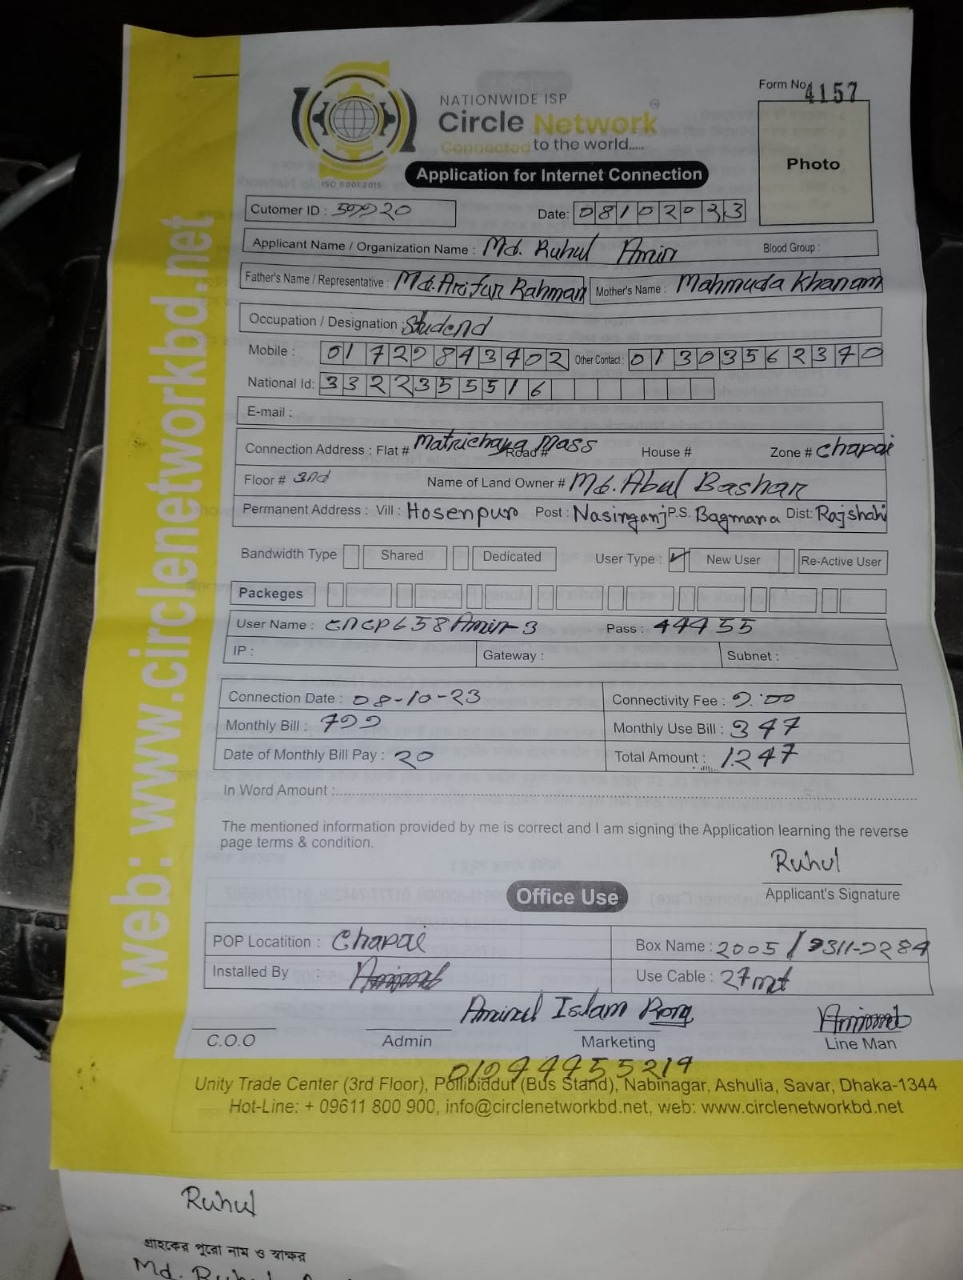 Form No 4157
NATIONWIDE ISP
Circle Network
Connected to the world.....
ISO 9001:2015
Photo
Application for Internet Connection
Cutomer ID : Date: 08102023
Applicant Name / Organization Name : Md. Ruhul Amin Blood Group :
Father's Name / Representative : Md. Arifur Rahman Mother's Name : Mahmuda Khanam
Occupation / Designation : Studend
Mobile : 01729843402 Other Contact : 01303562370
National Id: 3322355516
E-mail :
Connection Address : Flat # Matrichaya Mass Road # House # Zone # Chapai
Floor # 3nd Name of Land Owner # Md. Abul Bashar
Permanent Address : Vill : Hosenpur Post : Nasirganj P.S. Bagmara Dist: Rajshahi
Bandwidth Type Shared Dedicated User Type : ✓ New User Re-Active User
Packeges
User Name : Pass : 44455
IP : Gateway : Subnet :
Connection Date : 08-10-23 Connectivity Fee :
Monthly Bill : 799 Monthly Use Bill : 347
Date of Monthly Bill Pay : 20 Total Amount : 1247
In Word Amount :
The mentioned information provided by me is correct and I am signing the Application learning the reverse
page terms & condition.
Ruhul
Applicant's Signature
Office Use
POP Locatition : Chapai Box Name :
Installed By : Use Cable : 27mt
Aminul Islam
C.O.O Admin Marketing Line Man
Unity Trade Center (3rd Floor), Pollibiddut (Bus Stand), Nabinagar, Ashulia, Savar, Dhaka-1344
Hot-Line: + 09611 800 900, info@circlenetworkbd.net, web: www.circlenetworkbd.net
web: www.circlenetworkbd.net
Ruhul
গ্রাহকের পুরো নাম ও স্বাক্ষর
Md. Ruhul